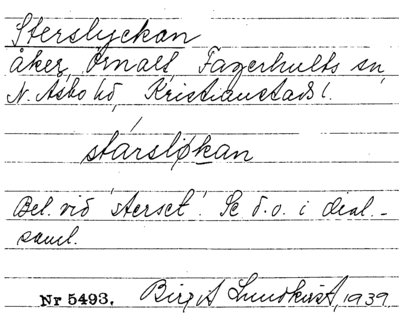 Sterslyckan
åker, Ornalt, Fagerhults sn,
N. Åsbo hd, Kristianstads l.
stársløkan
Bel. vid 'sterset'. Se d.o. i dial.-
saml.
Nr 5493. Birgit Lundkvist, 1939.